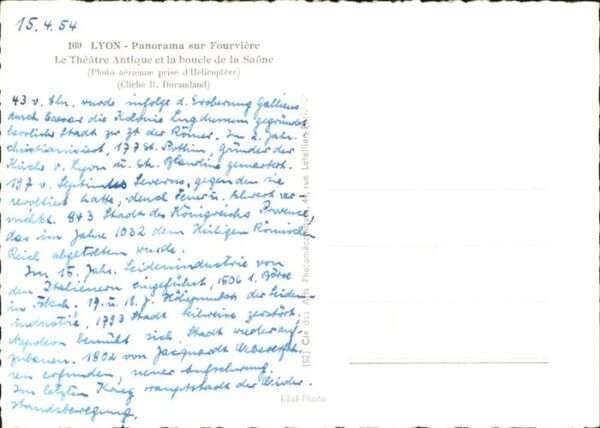 15.4.54
169 LYON - Panorama sur Fourvière
Le Théâtre Antique et la boucle de la Saône
(Photo aérienne prise d'Hélicoptère)
(Cliché R. Durandaud)
43 v. Chr. wurde infolge d. Eroberung Galliens
durch Caesar die Kolonie Lugdunum gegründet
herrliche Stadt zur Zt der Römer. Im 2. Jahr.
christianisiert, 177 St. Pothin, Gründer der
Kirche v. Lyon u. St. Blandine gemartert.
197 v. Septimus Severus, gegen den sie
revoltiert hatte, durch Feuer u. Schwert ver-
843 Stadt des Königreichs Provence,
das im Jahre 1032 dem Heiligen Römischen
Reich abgetreten wurde.
Im 15. Jahr. Seidenindustrie von
den Italienern eingeführt, 1506 1. Börse
in 17. u. 18. J. der Seiden-
industrie, 1793 Stadt teilweise zerstört.
Napoleon bemüht sich Stadt wiederauf-
zubauen. 1802 von Jacquard
erfunden, neuer Aufschwung.
Im letzten Krieg Hauptstadt der Wider-
standsbewegung.
44, rue Letellier
Edit-Photo